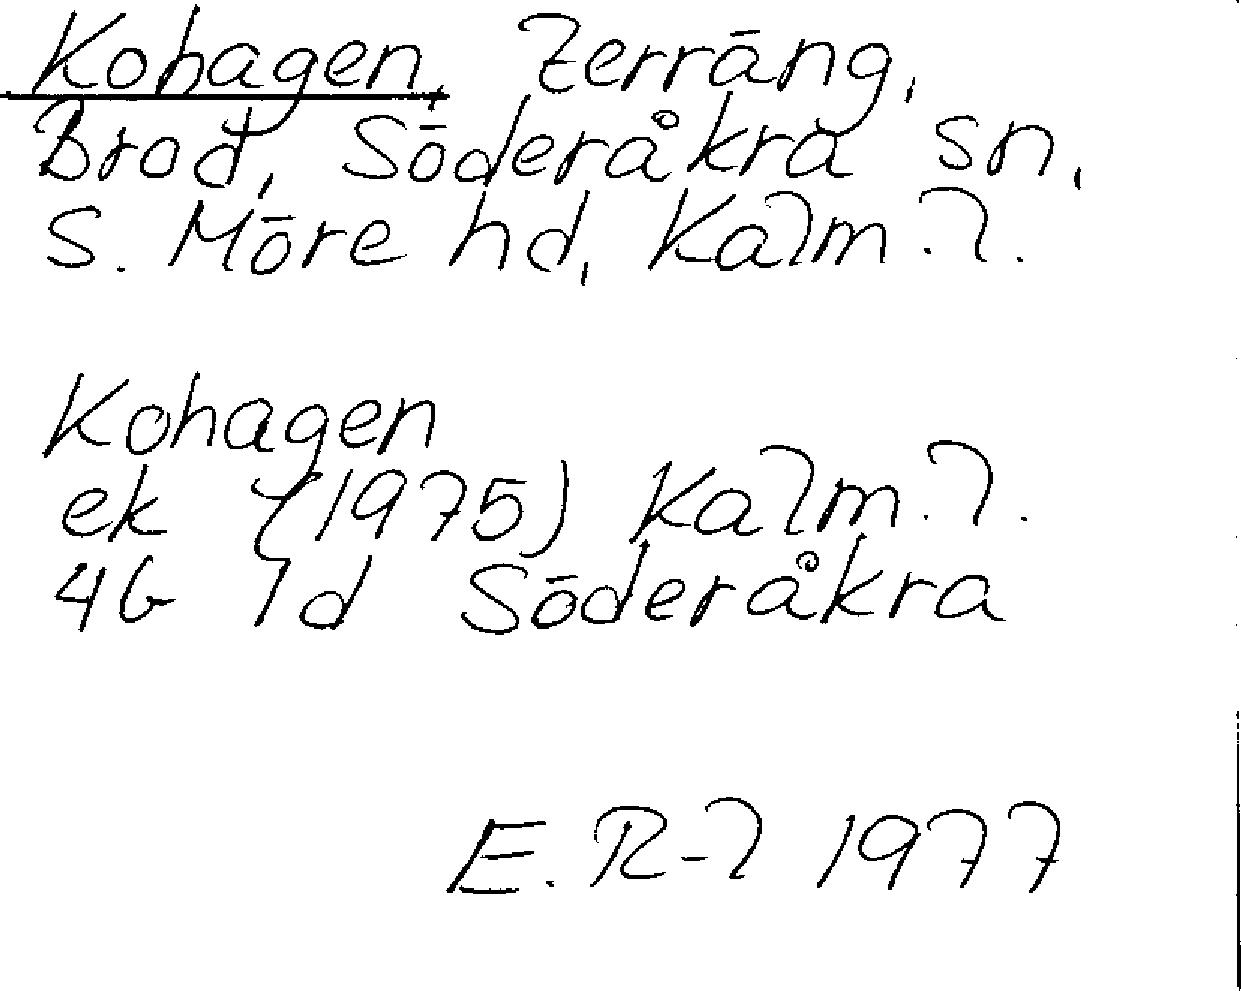 Kohagen, Terräng,
Brod, Söderåkra sn,
S. Möre hd, Kalm. l.
Kohagen
ek (1975) Kalm. l.
4G 7d Söderåkra
E. R-l 1977